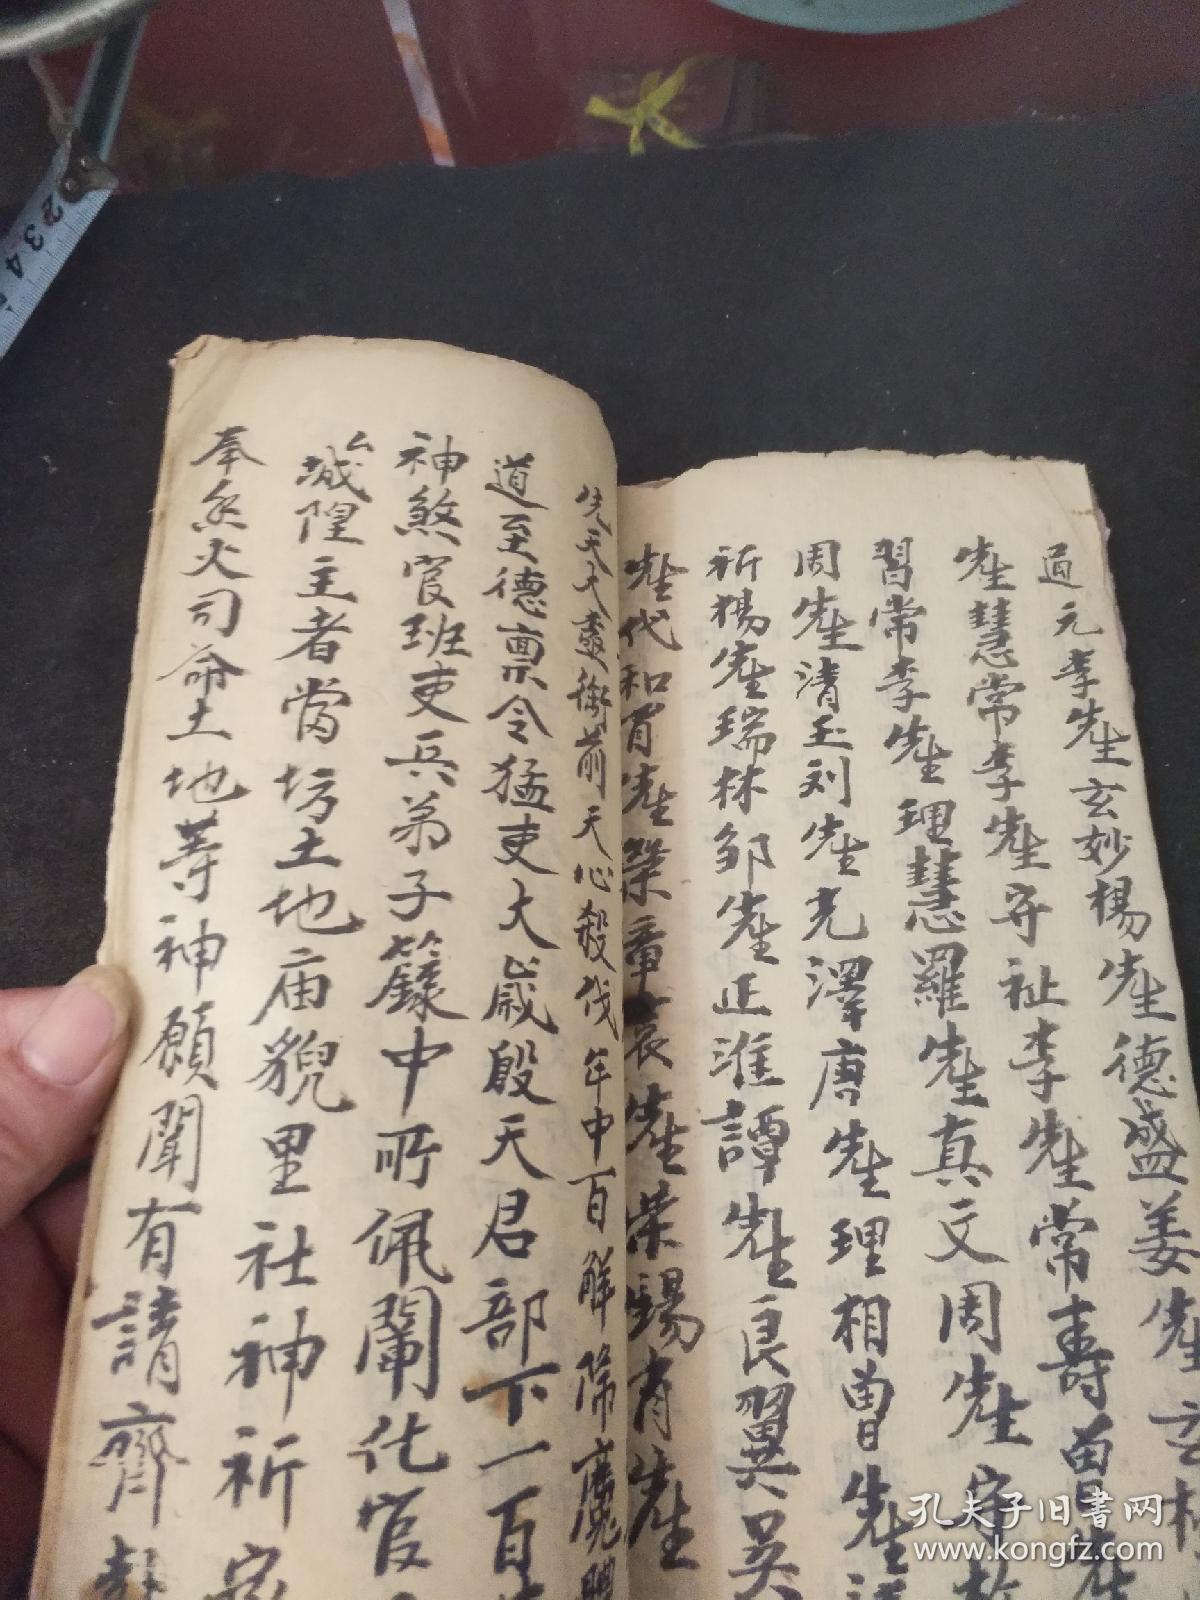 通元李先生玄妙楊先生德盛姜先生玄
先生慧常李先生守祉李先生常壽曾先生
習常李先生理慧羅先生真文周先生守
周先生清玉刘先生克澤唐先生理相曾先生
祈楊先生瑞林邹先生正淮譚先生良翼吳
先生代和胃先生榮章袁先生荣錫肖先生
先天大靈衛前天心殺伐年中百解除魔
道至德禀令猛吏大歲殷天君部下一百
神煞官班吏兵弟子籙中所佩闡化官
厶城隍主者當坊土地庙貌里社神祈家
奉香火司命土地等神願聞有請齊
孔夫子旧书网
www.kongfz.com
2 3 4